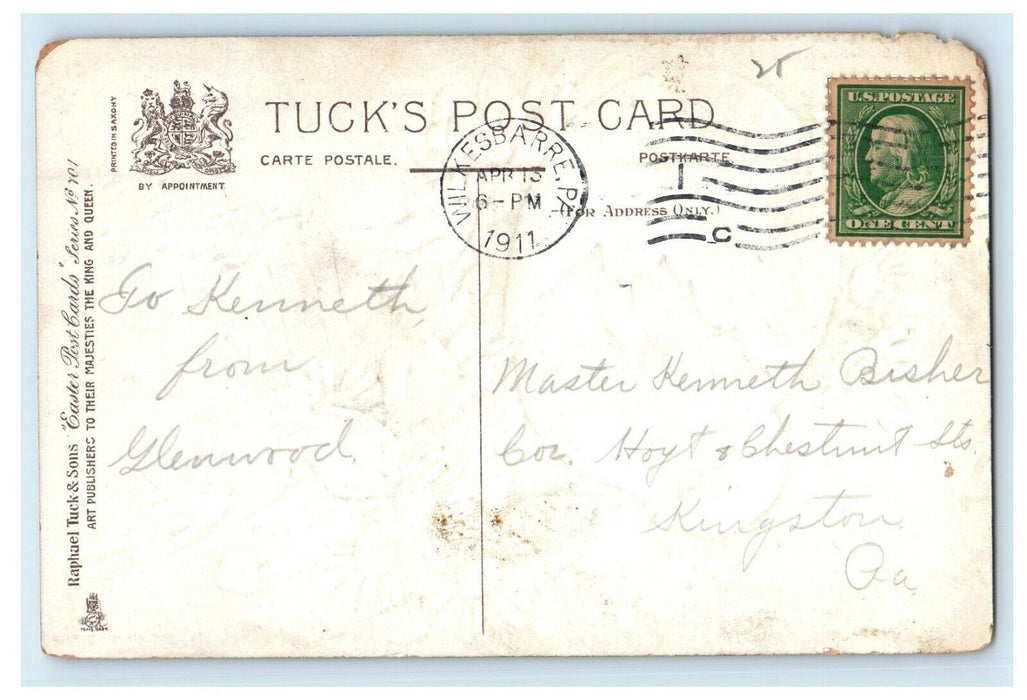 25
TUCK'S POST CARD
CARTE POSTALE.
POSTKARTE.
(FOR ADDRESS ONLY.)
PRINTED IN SAXONY
BY APPOINTMENT
WILKESBARRE, PA.
APR 13
6-PM
1911
1
C
U.S. POSTAGE
ONE CENT
Raphael Tuck & Sons "Easter Post Cards" Series No 101
ART PUBLISHERS TO THEIR MAJESTIES THE KING AND QUEEN.
To Kenneth,
from
Glenwood.
Master Kenneth Bisher
Cor. Hoyt & Chestnut Sts.
Kingston,
Pa